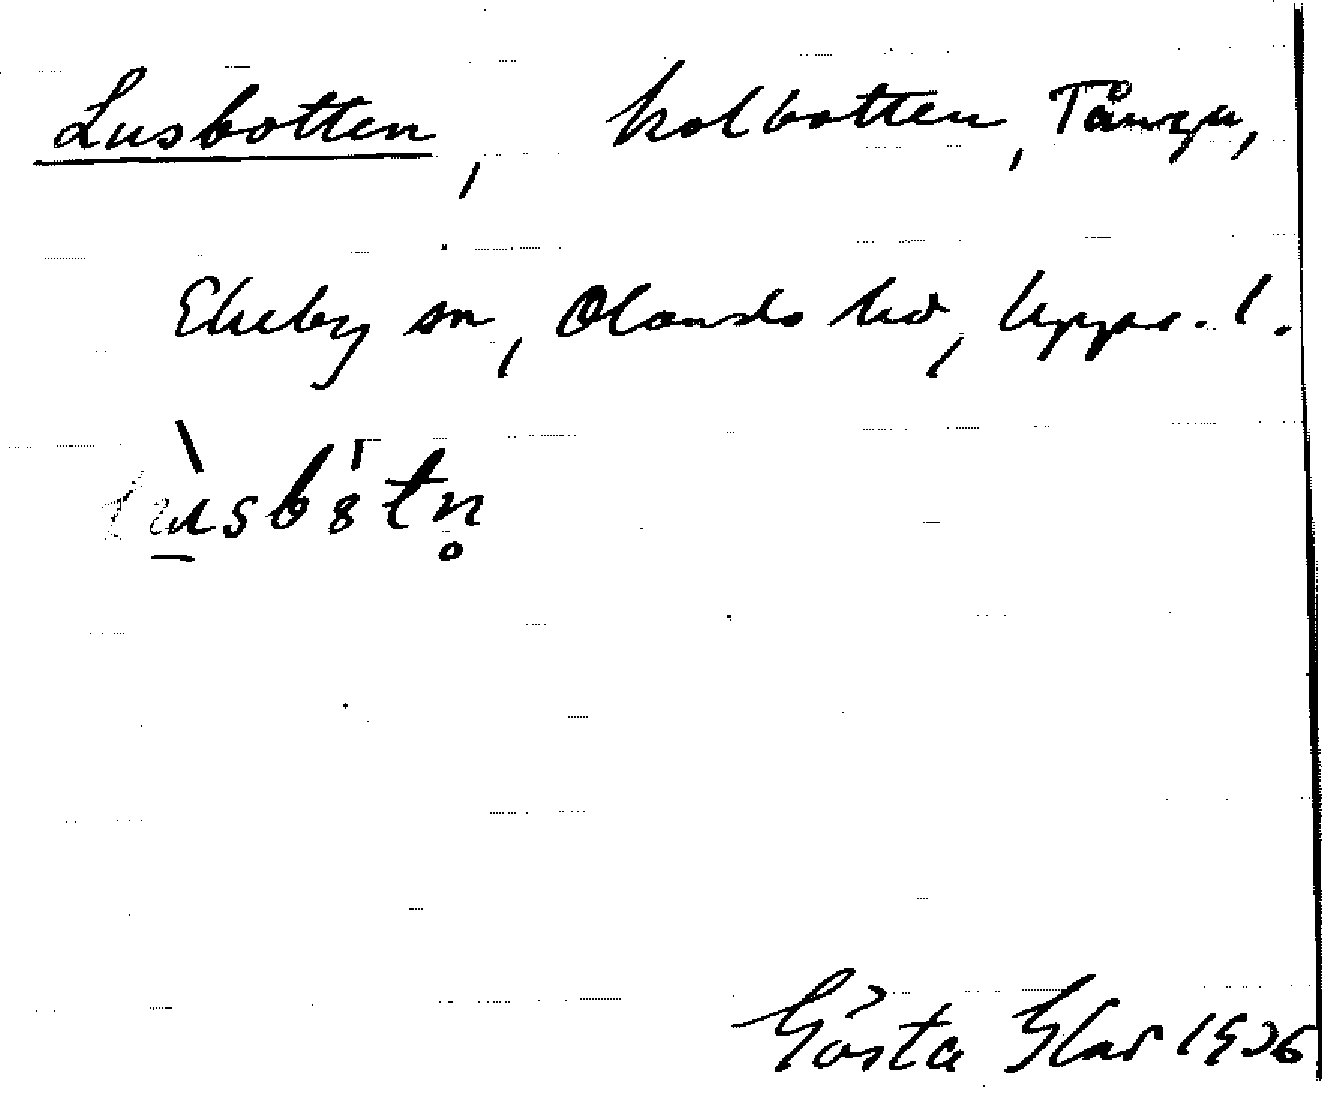 Lusbotten, kolbotten, Tånga,
Ekeby sn, Olands hd, Upps. l.
lùsbòtn̥
Gösta Glad 1936